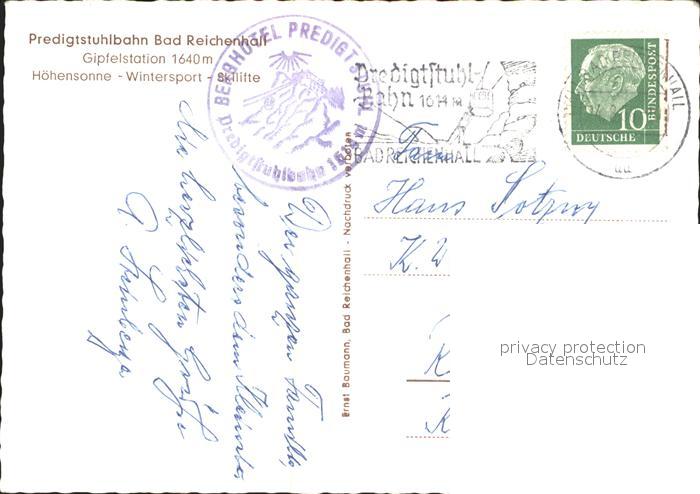 Predigtstuhlbahn Bad Reichenhall
Gipfelstation 1640 m
Höhensonne - Wintersport - Skilifte
BERGHOTEL PREDIGTSTUHL
Predigtstuhlbahn 16 m
Predigtstuhl-
Bahn 1614 m
BAD REICHENHALL
10
DEUTSCHE
BUNDESPOST
HALL
Ernst Baumann, Bad Reichenhall - Nachdruck verboten
Fam.
Hans
K.
K
K
Der ganzen Familie,
besonders dem Kleinsten
die herzlichsten Grüße
privacy protection
Datenschutz